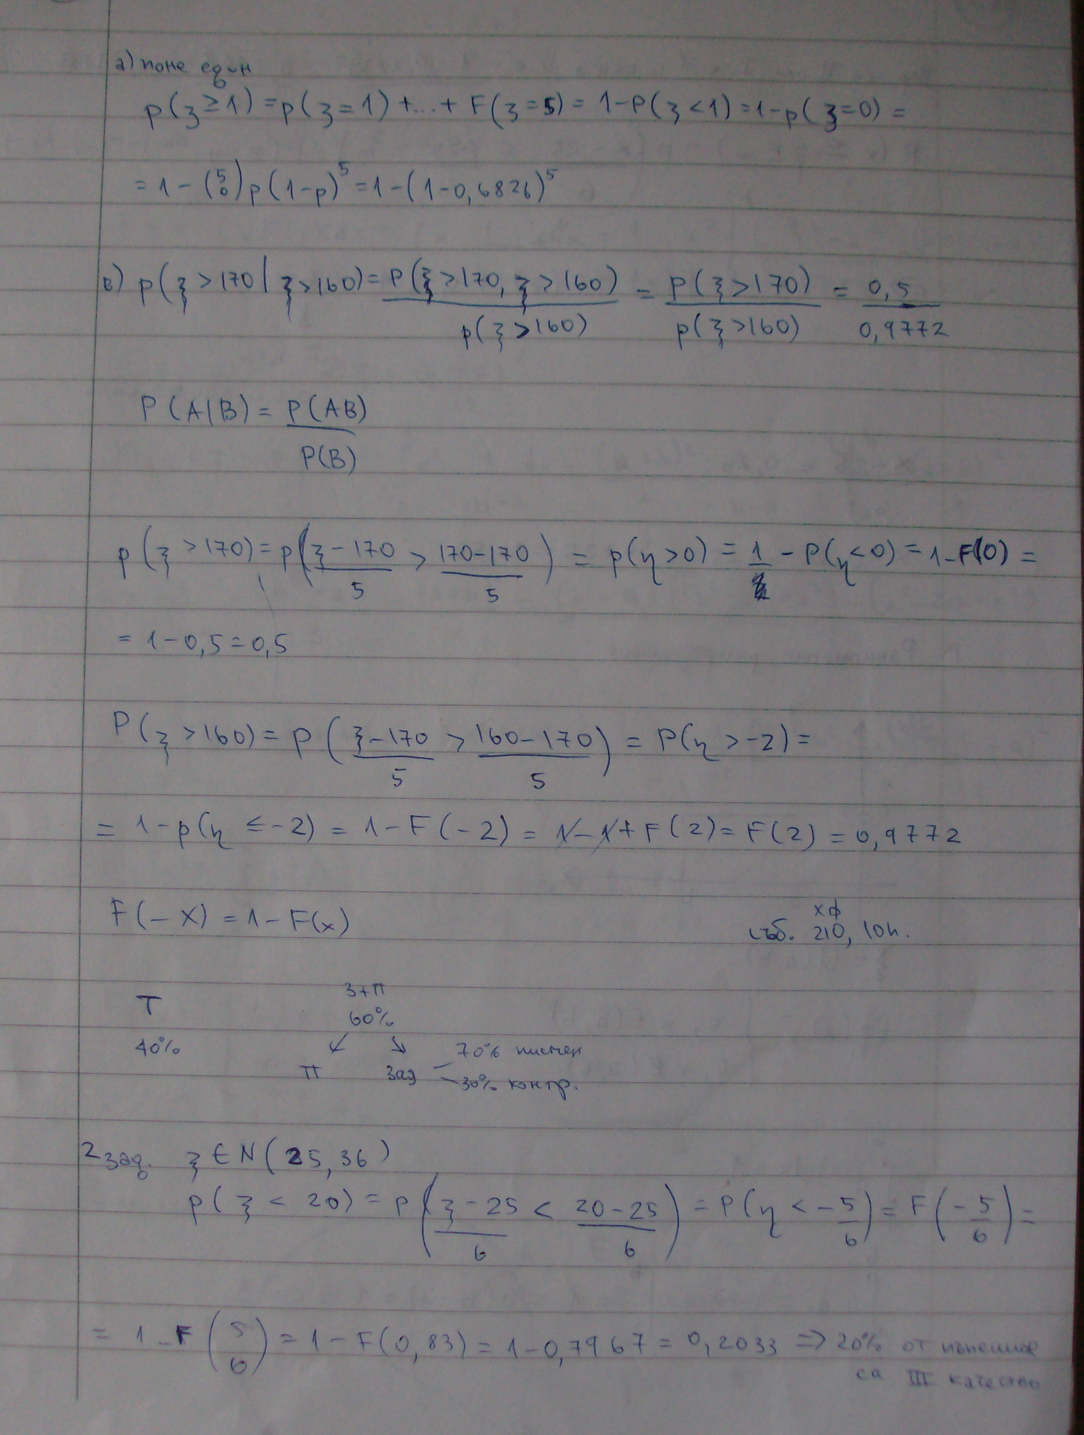 а) поне един
p(ξ≥1) = p(ξ=1) +...+ F(ξ=5) = 1-P(ξ<1) = 1-p(ξ=0) =
= 1 - (5 0) p (1-p)^5 = 1-(1-0,6826)^5
в) p(ξ>170 | ξ>160) = P(ξ>170, ξ>160) / p(ξ>160) = p(ξ>170) / p(ξ>160) = 0,5 / 0,9772
P(A|B) = P(AB) / P(B)
p(ξ>170) = p((ξ-170)/5 > (170-170)/5) = p(η>0) = 1 - P(η<0) = 1-F(0) =
= 1-0,5 = 0,5
P(ξ>160) = P((ξ-170)/5 > (160-170)/5) = P(η>-2) =
= 1-p(η≤-2) = 1-F(-2) = 1-1+F(2) = F(2) = 0,9772
F(-x) = 1-F(x)
хф
съб. 210, 10ч.
Т
З+П
60%
40%
70% писмен
П Зад
30% контр.
2 зад. ξ∈N(25,36)
p(ξ<20) = p((ξ-25)/6 < (20-25)/6) = P(η<-5/6) = F(-5/6) =
= 1-F(5/6) = 1-F(0,83) = 1-0,7967 = 0,2033 => 20% от
са III качество